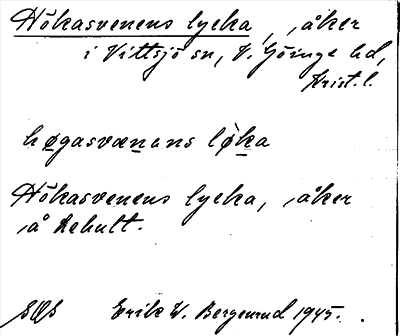 Hökasvenens lycka, åker
i Vittsjö sn, V. Göinge hd,
Krist. l.
høgasvænans løka
Hökasvenens lycka, åker
å Rehult.
SOS Erik W. Bergenrud 1945.